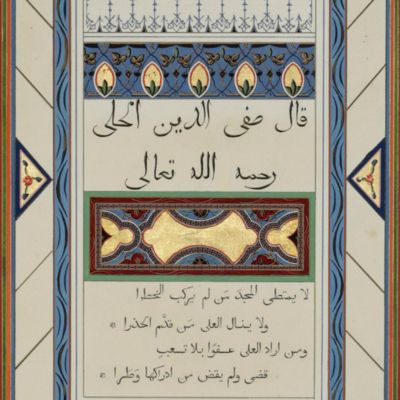 قال صفى الدين الحلى
رحمه الله تعالى
لا يمتطى المجد من لم يركب الخطرا
ولا ينال العلى من قدّم الحذرا
ومن اراد العلى عفوا بلا تعب
قضى ولم يقض من ادراكها وطرا